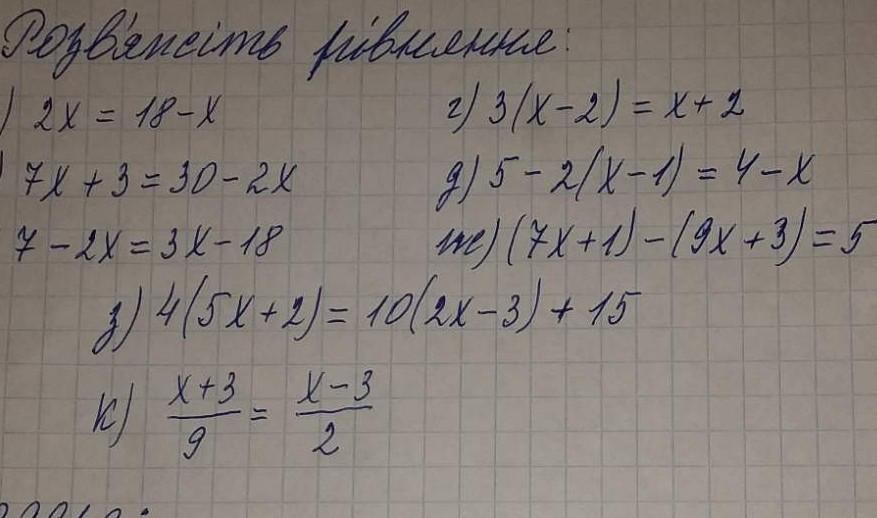 Розв'яжіть рівняння:
) 2x = 18 - x
г) 3(x - 2) = x + 2
) 7x + 3 = 30 - 2x
д) 5 - 2(x - 1) = 4 - x
7 - 2x = 3x - 18
ж) (7x + 1) - (9x + 3) = 5
з) 4(5x + 2) = 10(2x - 3) + 15
к) \frac{x+3}{9} = \frac{x-3}{2}